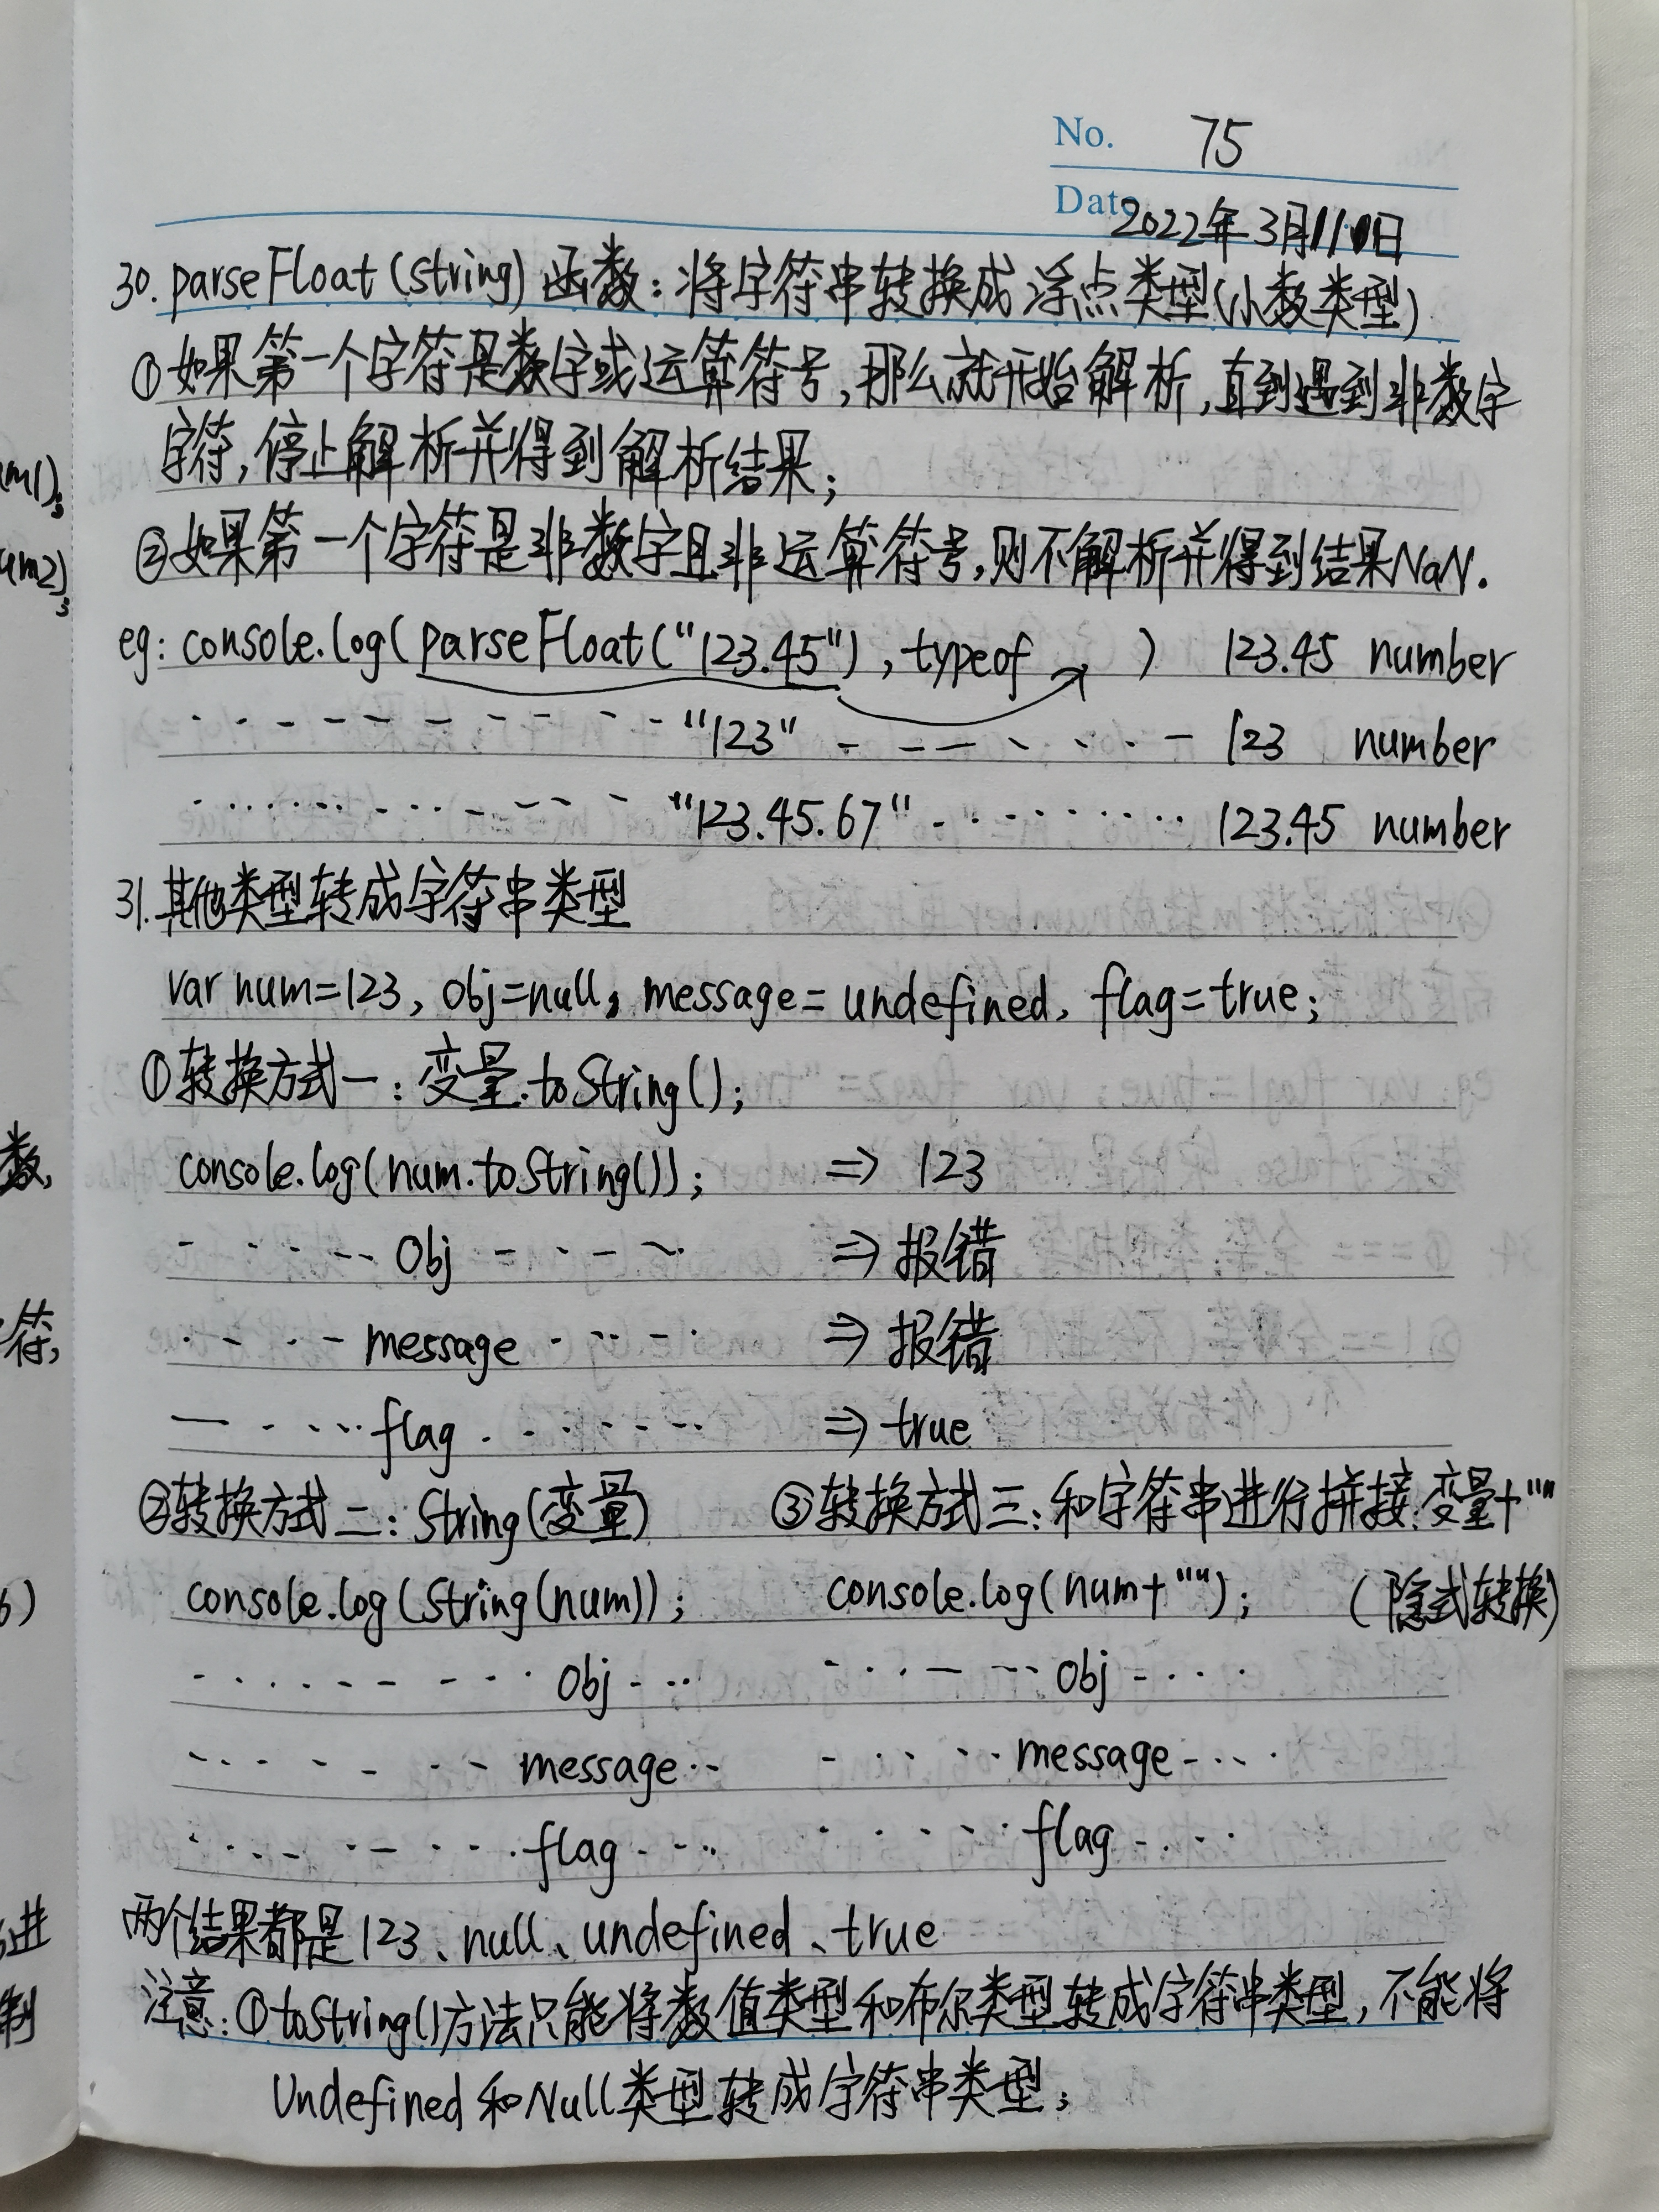 No. 75
Date 2022年3月11日
30. parseFloat(string)函数:将字符串转换成浮点类型(小数类型)
①如果第一个字符是数字或运算符号,那么就开始解析,直到遇到非数字
字符,停止解析并得到解析结果;
②如果第一个字符是非数字且非运算符号,则不解析并得到结果NaN.
eg: console.log(parseFloat("123.45"), typeof ↗ ) 123.45 number
"123" 123 number
"123.45.67" 123.45 number
31. 其他类型转成字符串类型
var num=123, obj=null, message=undefined, flag=true;
①转换方式一:变量.toString();
console.log(num.toString()); ⇒ 123
obj ⇒ 报错
message ⇒ 报错
flag ⇒ true
②转换方式二:String(变量) ③转换方式三:和字符串进行拼接:变量+""
console.log(String(num)); console.log(num+""); (隐式转换)
obj obj
message message
flag flag
两个结果都是123、null、undefined、true
注意:①toString()方法只能将数值类型和布尔类型转成字符串类型,不能将
Undefined和Null类型转成字符串类型;
m1);
m2);
数,
符,
6)
进
制